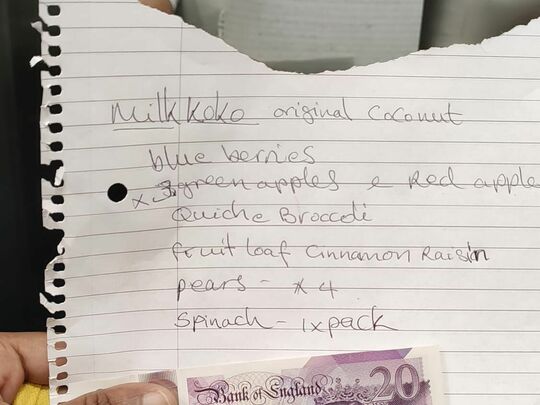 Milk KOKO original coconut
blue berries
x 3 green apples e Red apple
Quiche Broccoli
fruit loaf cinnamon Raisin
pears - x 4
Spinach - 1x pack
Bank of England 20